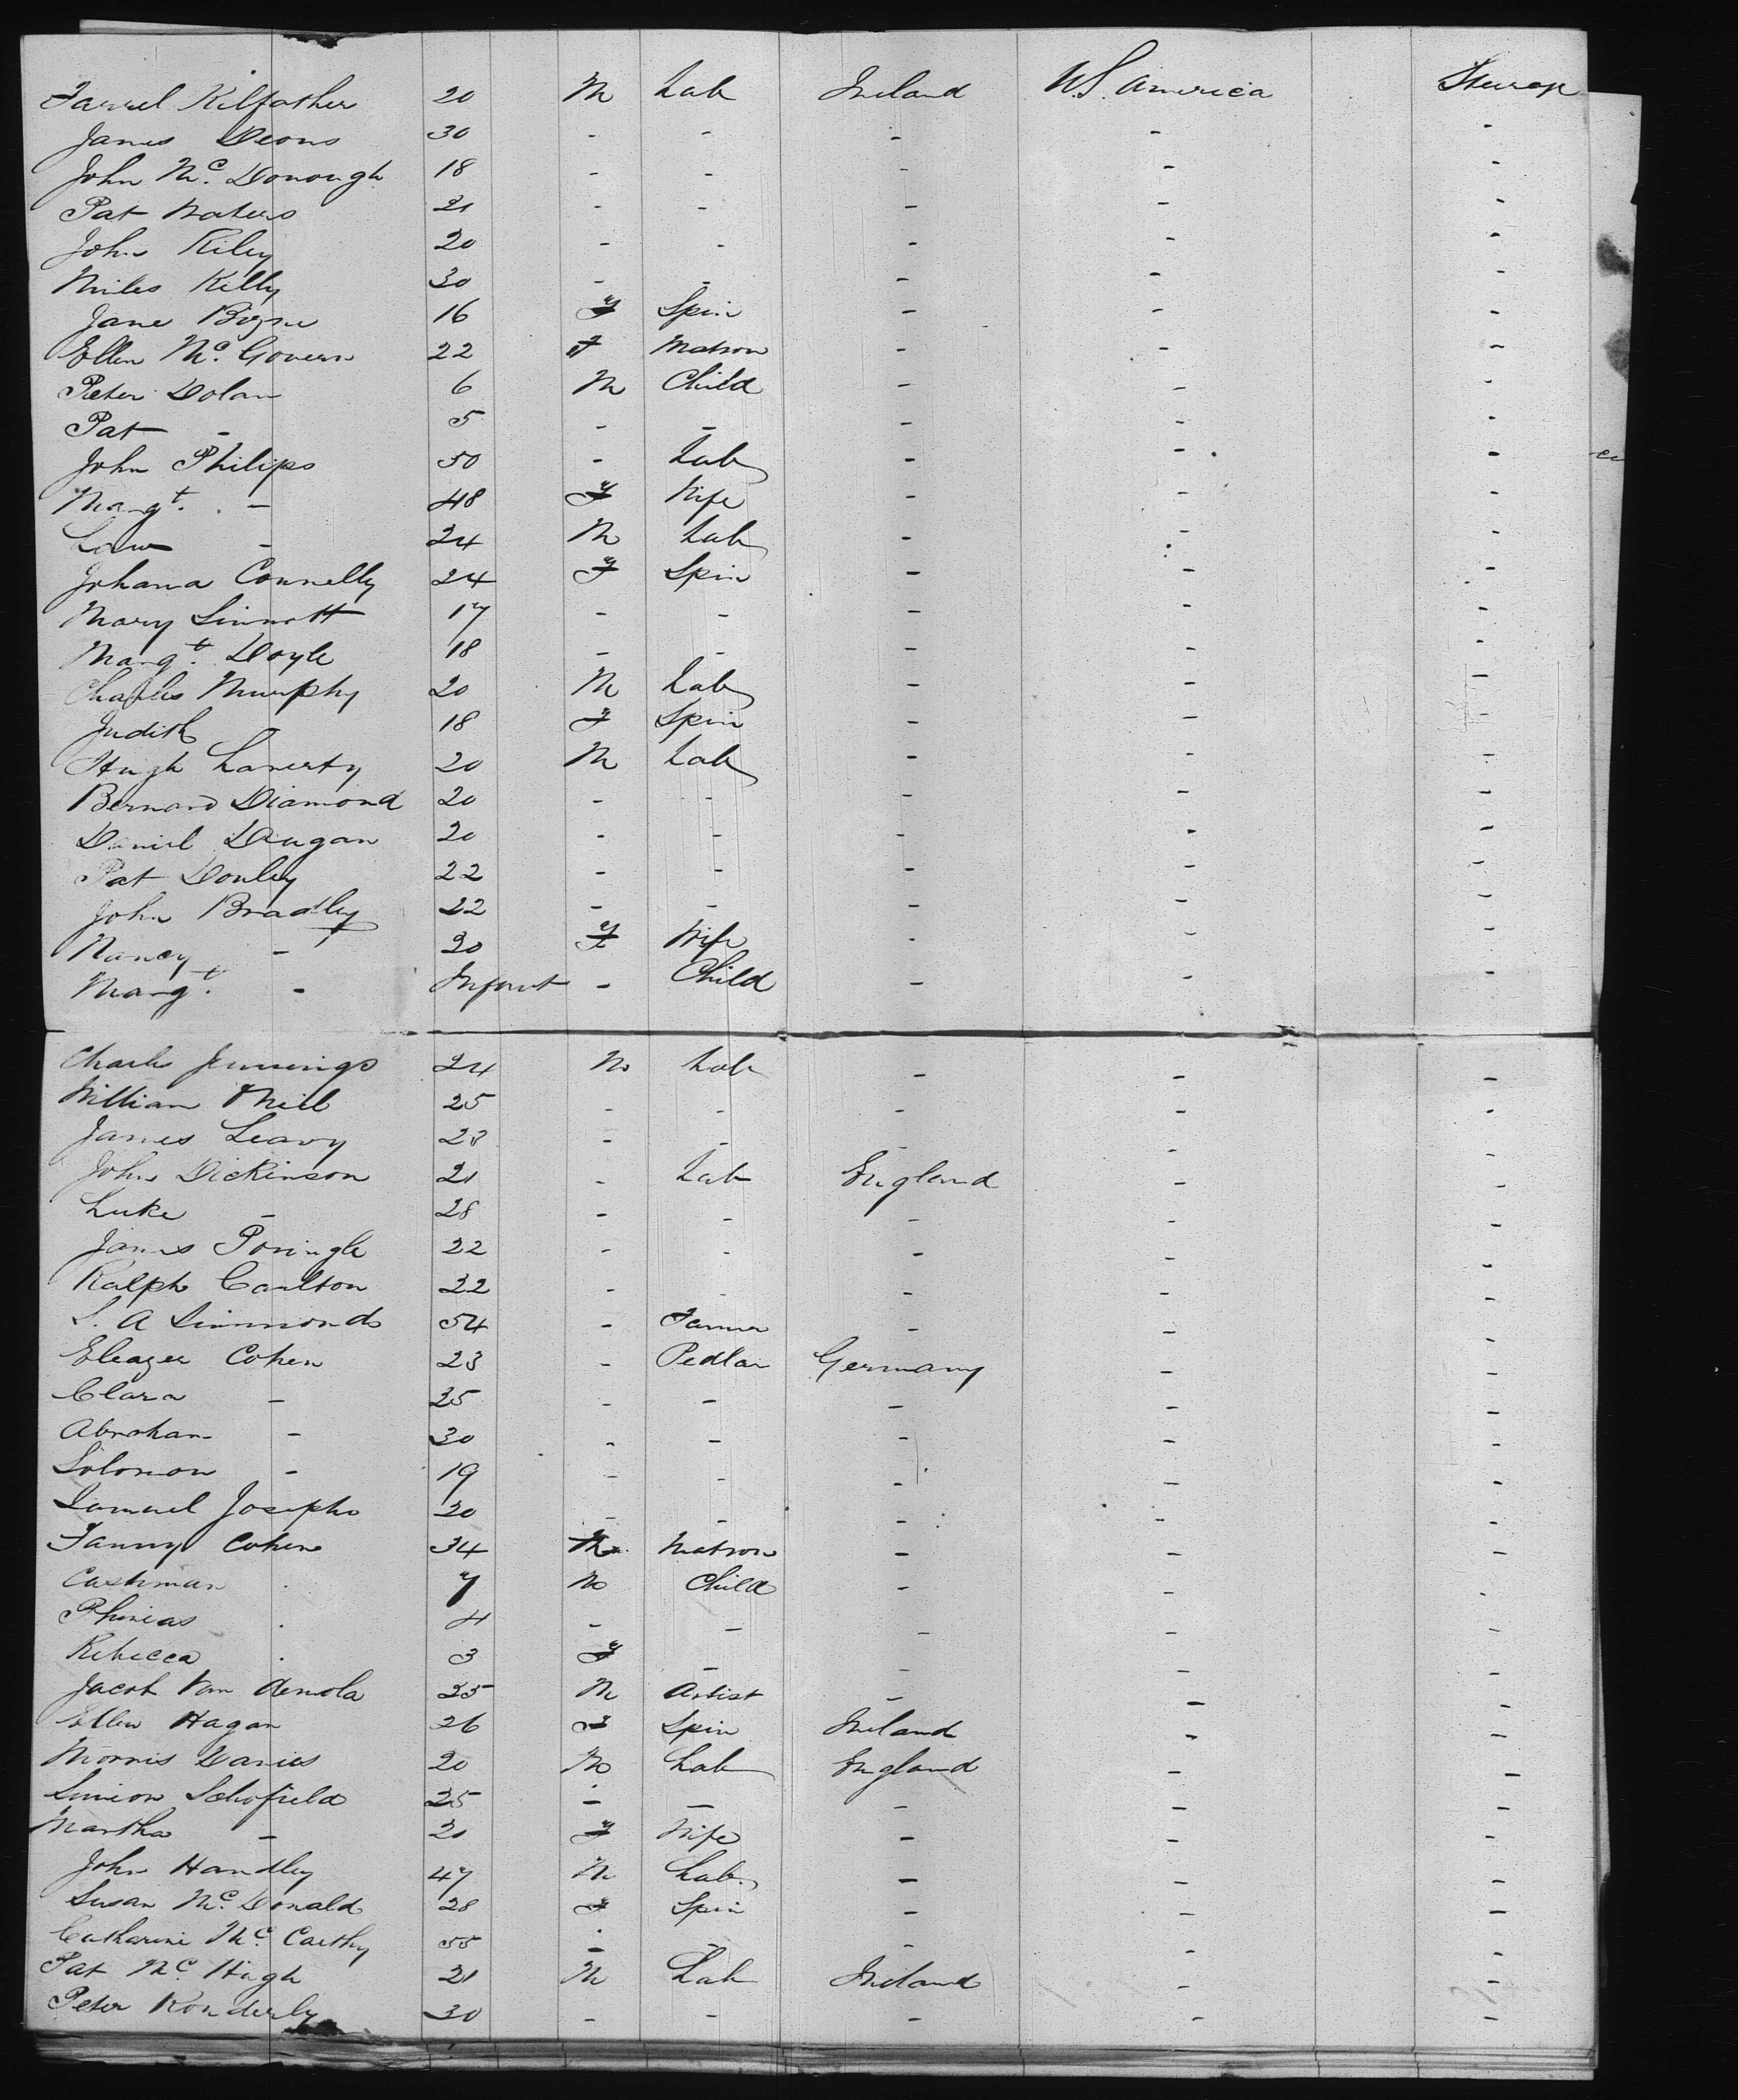 Farrel Kilfather 20 M Lab Ireland U.S. America Steerage
James Deons 30 - - - - -
John Mc. Donough 18 - - - - -
Pat Waters 21 - - - - -
John Kiley 20 - - - - -
Miles Kelly 30 - - - - -
Jane Boyne 16 F Spin - - -
Ellen Mc. Govern 22 F Matron - - -
Peter Dolan 6 M Child - - -
Pat - 5 - - - - -
John Philips 50 - Lab - - -
Margt. - 48 F Wife - - -
Law - 24 M Lab - - -
Johana Connelly 24 F Spin - - -
Mary Sinnott 17 - - - - -
Margt. Doyle 18 - - - - -
Charles Murphy 20 M Lab - - -
Judith 18 F Spin - - -
Hugh Laverty 20 M Lab - - -
Bernard Diamond 20 - - - - -
Daniel Dougan 20 - - - - -
Pat Donley 22 - - - - -
John Bradley 22 - - - - -
Nancy - 20 F Wife - - -
Margt. - Infant - Child - - -
Charles Jennings 24 M Lab - - -
William ONeill 25 - - - - -
James Leavy 23 - - - - -
John Dickinson 21 - Lab England - -
Luke - 28 - - - - -
James Pringle 22 - - - - -
Ralph Carlton 32 - - - - -
S. A Simmonds 54 - Farmer - - -
Eleazer Cohen 23 - Pedlar Germany - -
Clara - 25 - - - - -
Abraham - 30 - - - - -
Solomon - 19 - - - - -
Samuel Josephs 20 - - - - -
Fanny Cohen 34 Matron - - -
Cashman 7 M Child - - -
Phineas 4 - - - - -
Rebecca 3 F - - - -
Jacob Van 25 M Artist - - -
Ellen Hagan 26 F Spin Ireland - -
Morris Davies 20 M Lab England - -
Simeon Schofield 25 - - - - -
Martha - 21 F Wife - - -
John Handley 47 M Lab - - -
Susan Mc. Donald 28 F Spin - - -
Catharine Mc. Carthy 55 - - - - -
Pat Mc. Hugh 21 M Lab Ireland - -
Peter Konderly 30 - - - - -